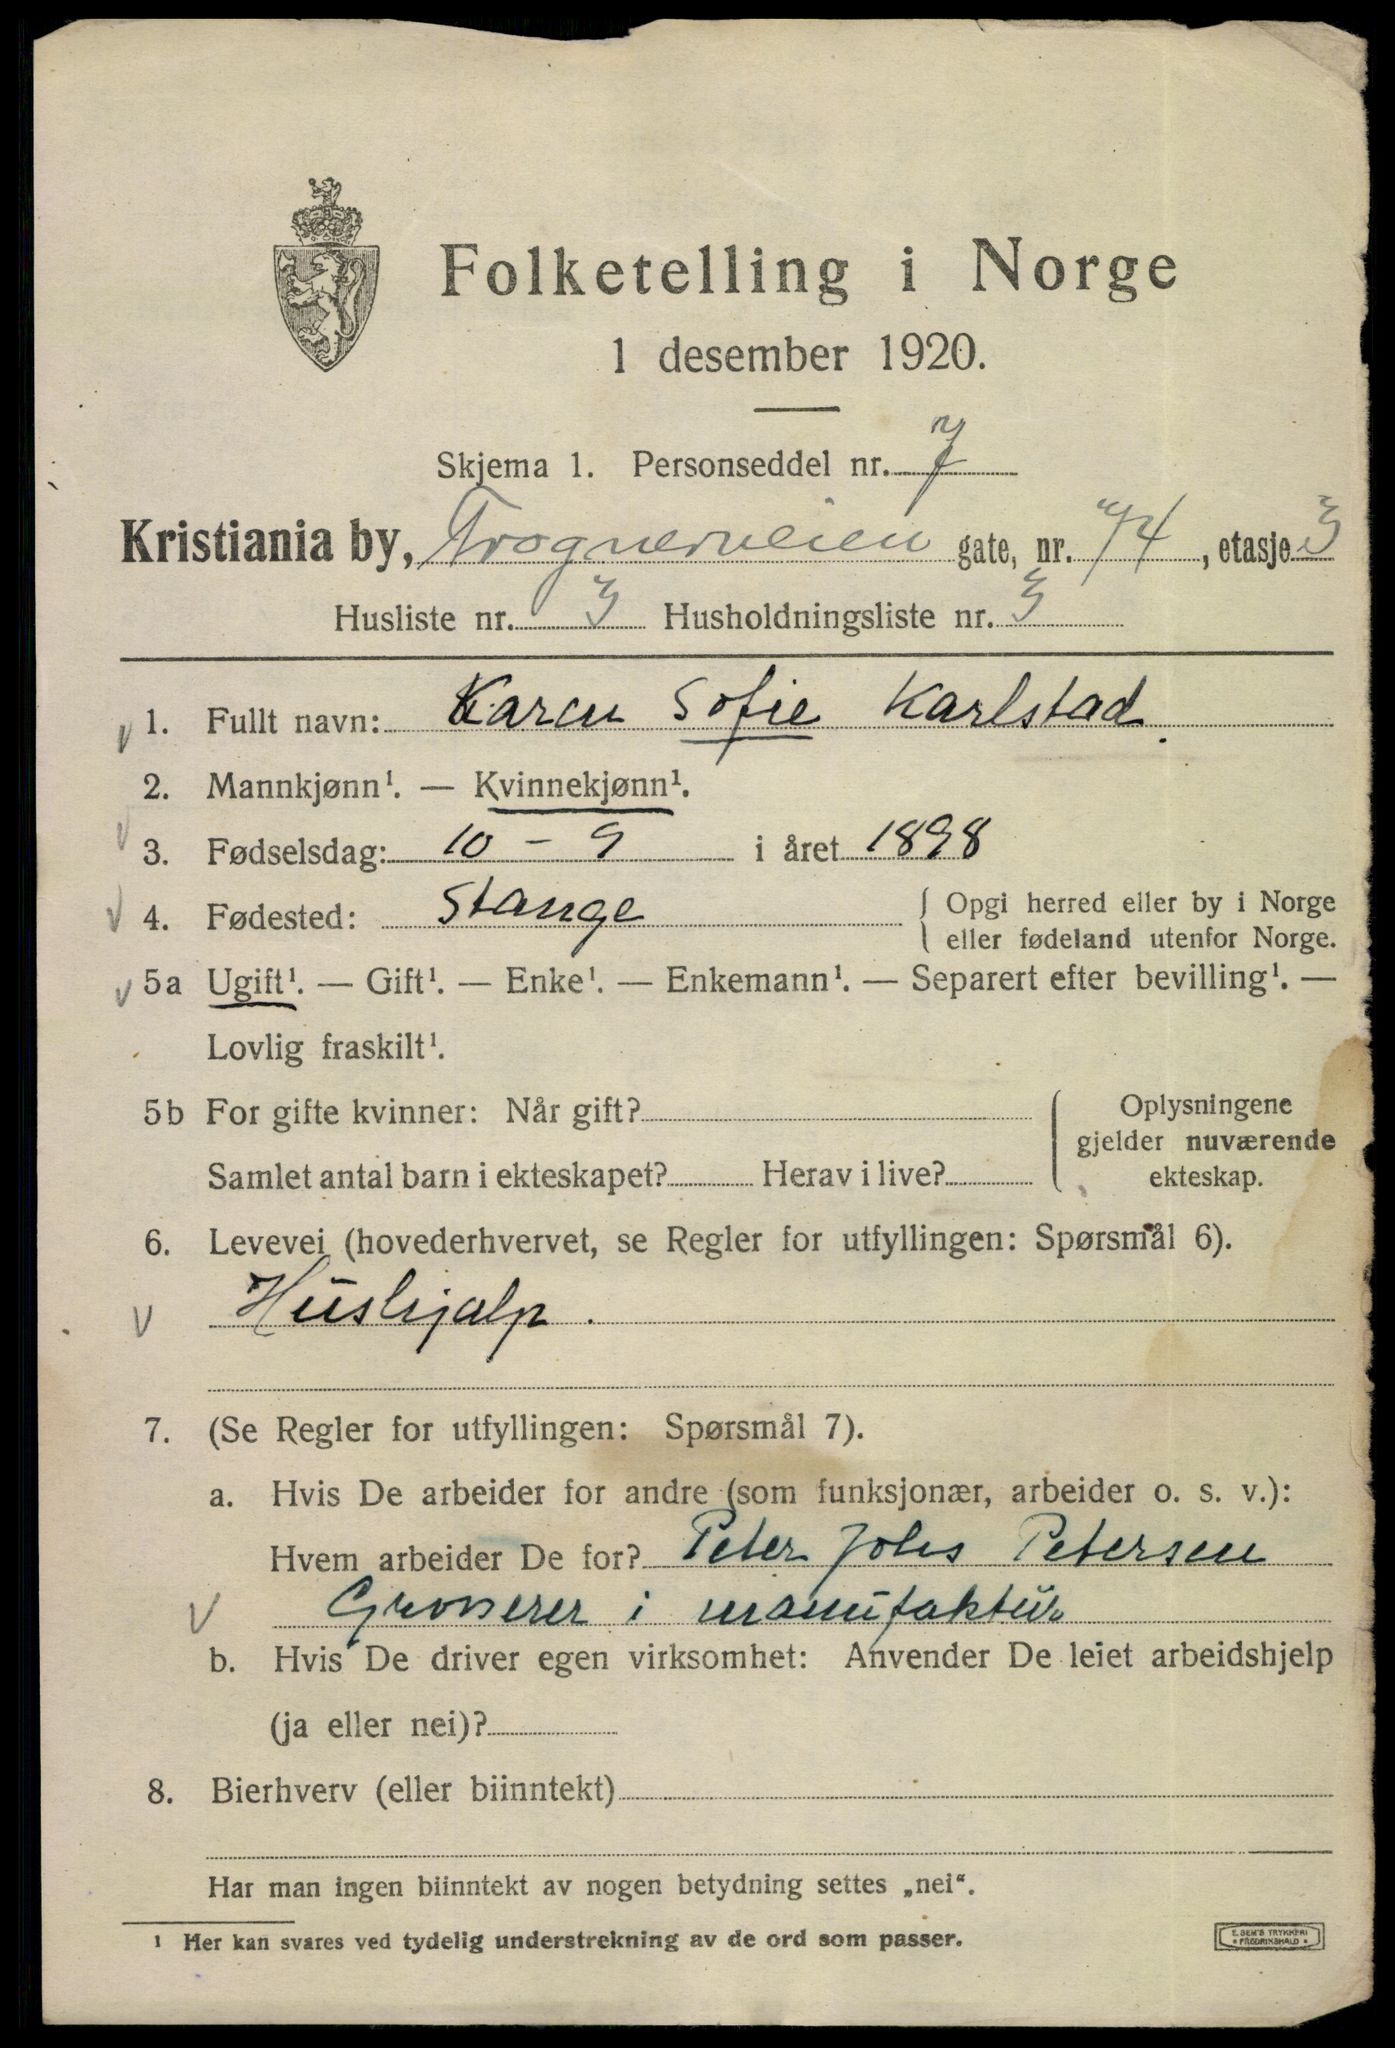 Folketelling i Norge
1 desember 1920.
Skjema 1. Personseddel nr. 7
Kristiania by, Frognerveien gate, nr. 44, etasje 3
Husliste nr. 3 Husholdningsliste nr. 3
1. Fullt navn: Karen Sofie Karlstad.
2. Mannkjønn¹. — Kvinnekjønn¹.
3. Fødselsdag: 10 - 9 i året 1898
4. Fødested: Stange { Opgi herred eller by i Norge
eller fødeland utenfor Norge.
5a Ugift¹. — Gift¹. — Enke¹. — Enkemann¹. — Separert efter bevilling¹. —
Lovlig fraskilt¹.
5b For gifte kvinner: Når gift?
Samlet antal barn i ekteskapet? Herav i live?
Oplysningene
gjelder nuværende
ekteskap.
6. Levevei (hovederhvervet, se Regler for utfyllingen: Spørsmål 6).
Hushjalp.
7. (Se Regler for utfyllingen: Spørsmål 7).
a. Hvis De arbeider for andre (som funksjonær, arbeider o. s. v.):
Hvem arbeider De for? Peter Johs Petersen
Grosserer i manufaktur
b. Hvis De driver egen virksomhet: Anvender De leiet arbeidshjelp
(ja eller nei)?
8. Bierhverv (eller biinntekt)
Har man ingen biinntekt av nogen betydning settes „nei“.
¹ Her kan svares ved tydelig understrekning av de ord som passer.
E. SEM'S TRYKKERI
FREDRIKSHALD